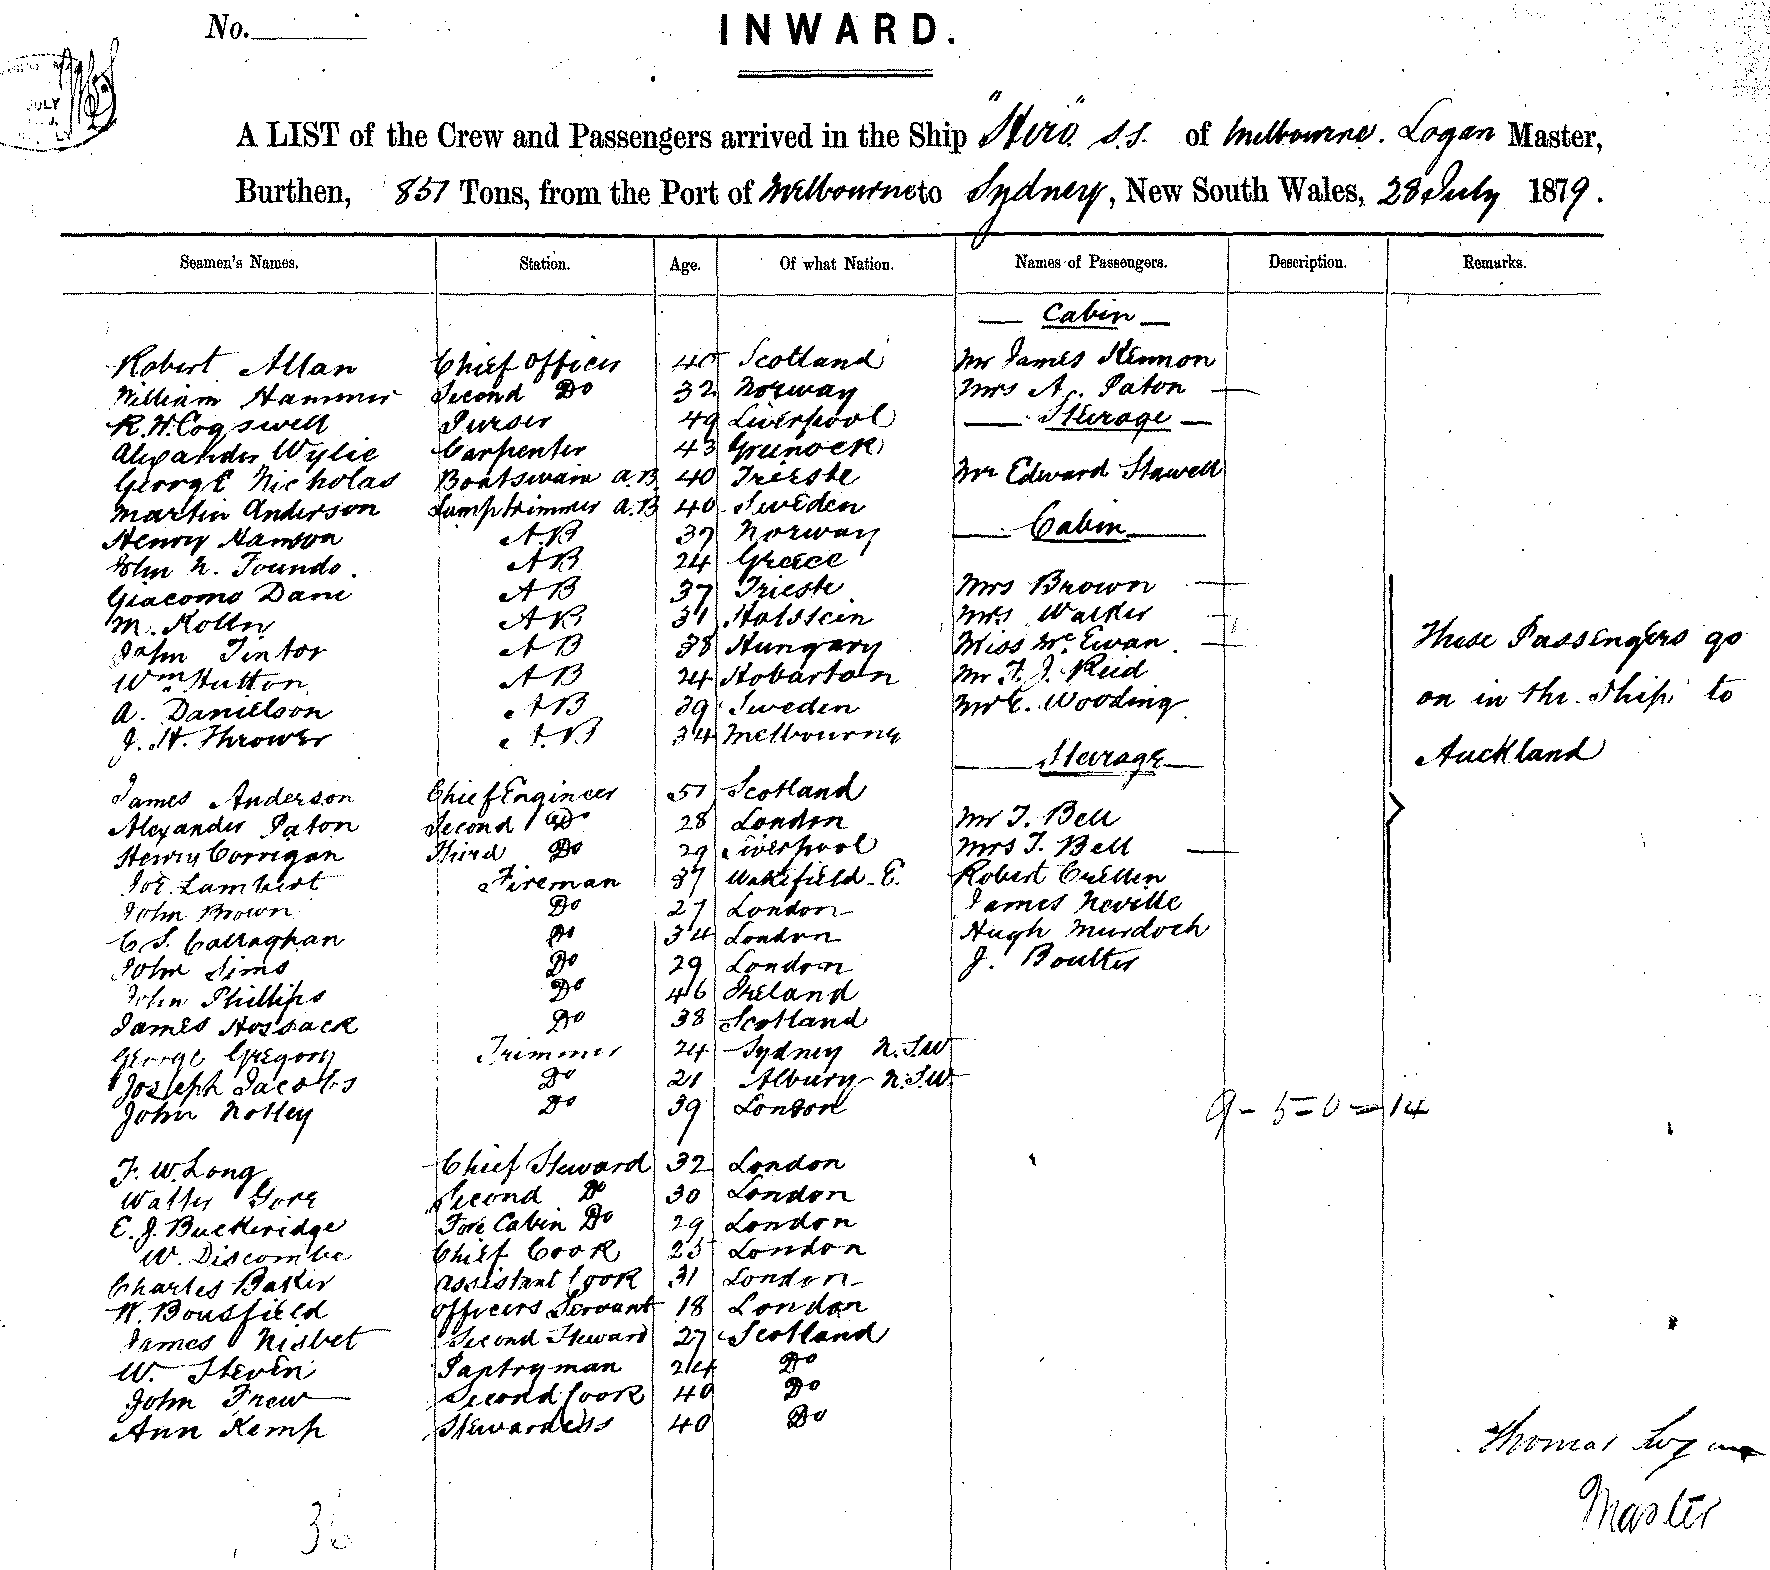 No.
INWARD.
JULY
A LIST of the Crew and Passengers arrived in the Ship "Hero" s.s. of Melbourne. Logan Master,
Burthen, 851 Tons, from the Port of Melbourne to Sydney, New South Wales, 28 July 1879.
Seamen's Names. Station. Age. Of what Nation. Names of Passengers. Description. Remarks.
Cabin
Robert Allan Chief Officer 40 Scotland Mr James Kennon
William Hammer Second Do 32 Norway Mrs A. Paton
R. H. Cogswell Purser 49 Liverpool Steerage
Alexander Wylie Carpenter 43 Greenock
George Nicholas Boatswain A.B 40 Trieste Mr Edward Stawell
Martin Anderson Lamptrimmer A.B 40 Sweden
Henry Hanson A.B 37 Norway Cabin
John N. Foundo. AB 24 Greece
Giacomo Dani AB 37 Trieste Mrs Brown
M. Kolln AB 31 Holstein Mrs Walker
John Tintor AB 38 Hungary Miss McEwan.
Wm Hutton AB 24 Hobarton Mr F. J. Reid
A. Danielson AB 29 Sweden Mr E. Wooding
J. H. Thrower A.B 34 Melbourne
These Passengers go
on in the Ship to
Auckland
Steerage
James Anderson Chief Engineer 51 Scotland
Alexander Paton Second Do 28 London Mr T. Bell
Henry Corrigan Third Do 29 Liverpool Mrs T. Bell
Jos. Lambert Fireman 37 Wakefield. E. Robert Crellin
John Brown Do 27 London James Neville
C S. Callaghan Do 34 London Hugh Murdoch
John Sims Do 29 London J. Boulter
John Phillips Do 46 Ireland
James Hossack Do 38 Scotland
George Gregory Trimmer 24 Sydney N.S.W
Joseph Jacobs Do 21 Albury N.S.W.
John Notley Do 39 London
9 - 5 = 0 = 14
F. W. Long Chief Steward 32 London
Walter Gore Second Do 30 London
E. J. Buckeridge Fore Cabin Do 29 London
W. Discombe Chief Cook 25 London
Charles Baker Assistant Cook 31 London
W. Bousfield Officers Servant 18 London
James Nisbet Second Steward 27 Scotland
W. Steven Pantryman 24 Do
John Frew Second Cook 40 Do
Ann Kemp Stewardess 40 Do
Thomas Logan
Master
36